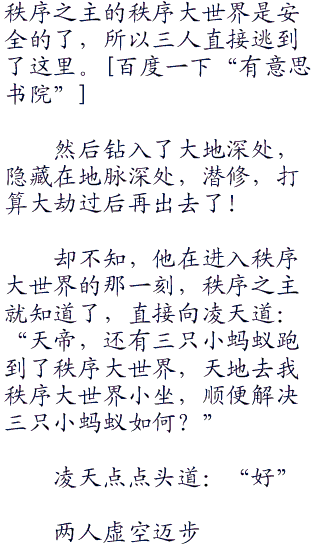 秩序之主的秩序大世界是安
全的了，所以三人直接逃到
了这里。[百度一下“有意思
书院”]
然后钻入了大地深处，
隐藏在地脉深处，潜修，打
算大劫过后再出去了！
却不知，他在进入秩序
大世界的那一刻，秩序之主
就知道了，直接向凌天道：
“天帝，还有三只小蚂蚁跑
到了秩序大世界，天地去我
秩序大世界小坐，顺便解决
三只小蚂蚁如何？”
凌天点点头道：“好”
两人虚空迈步